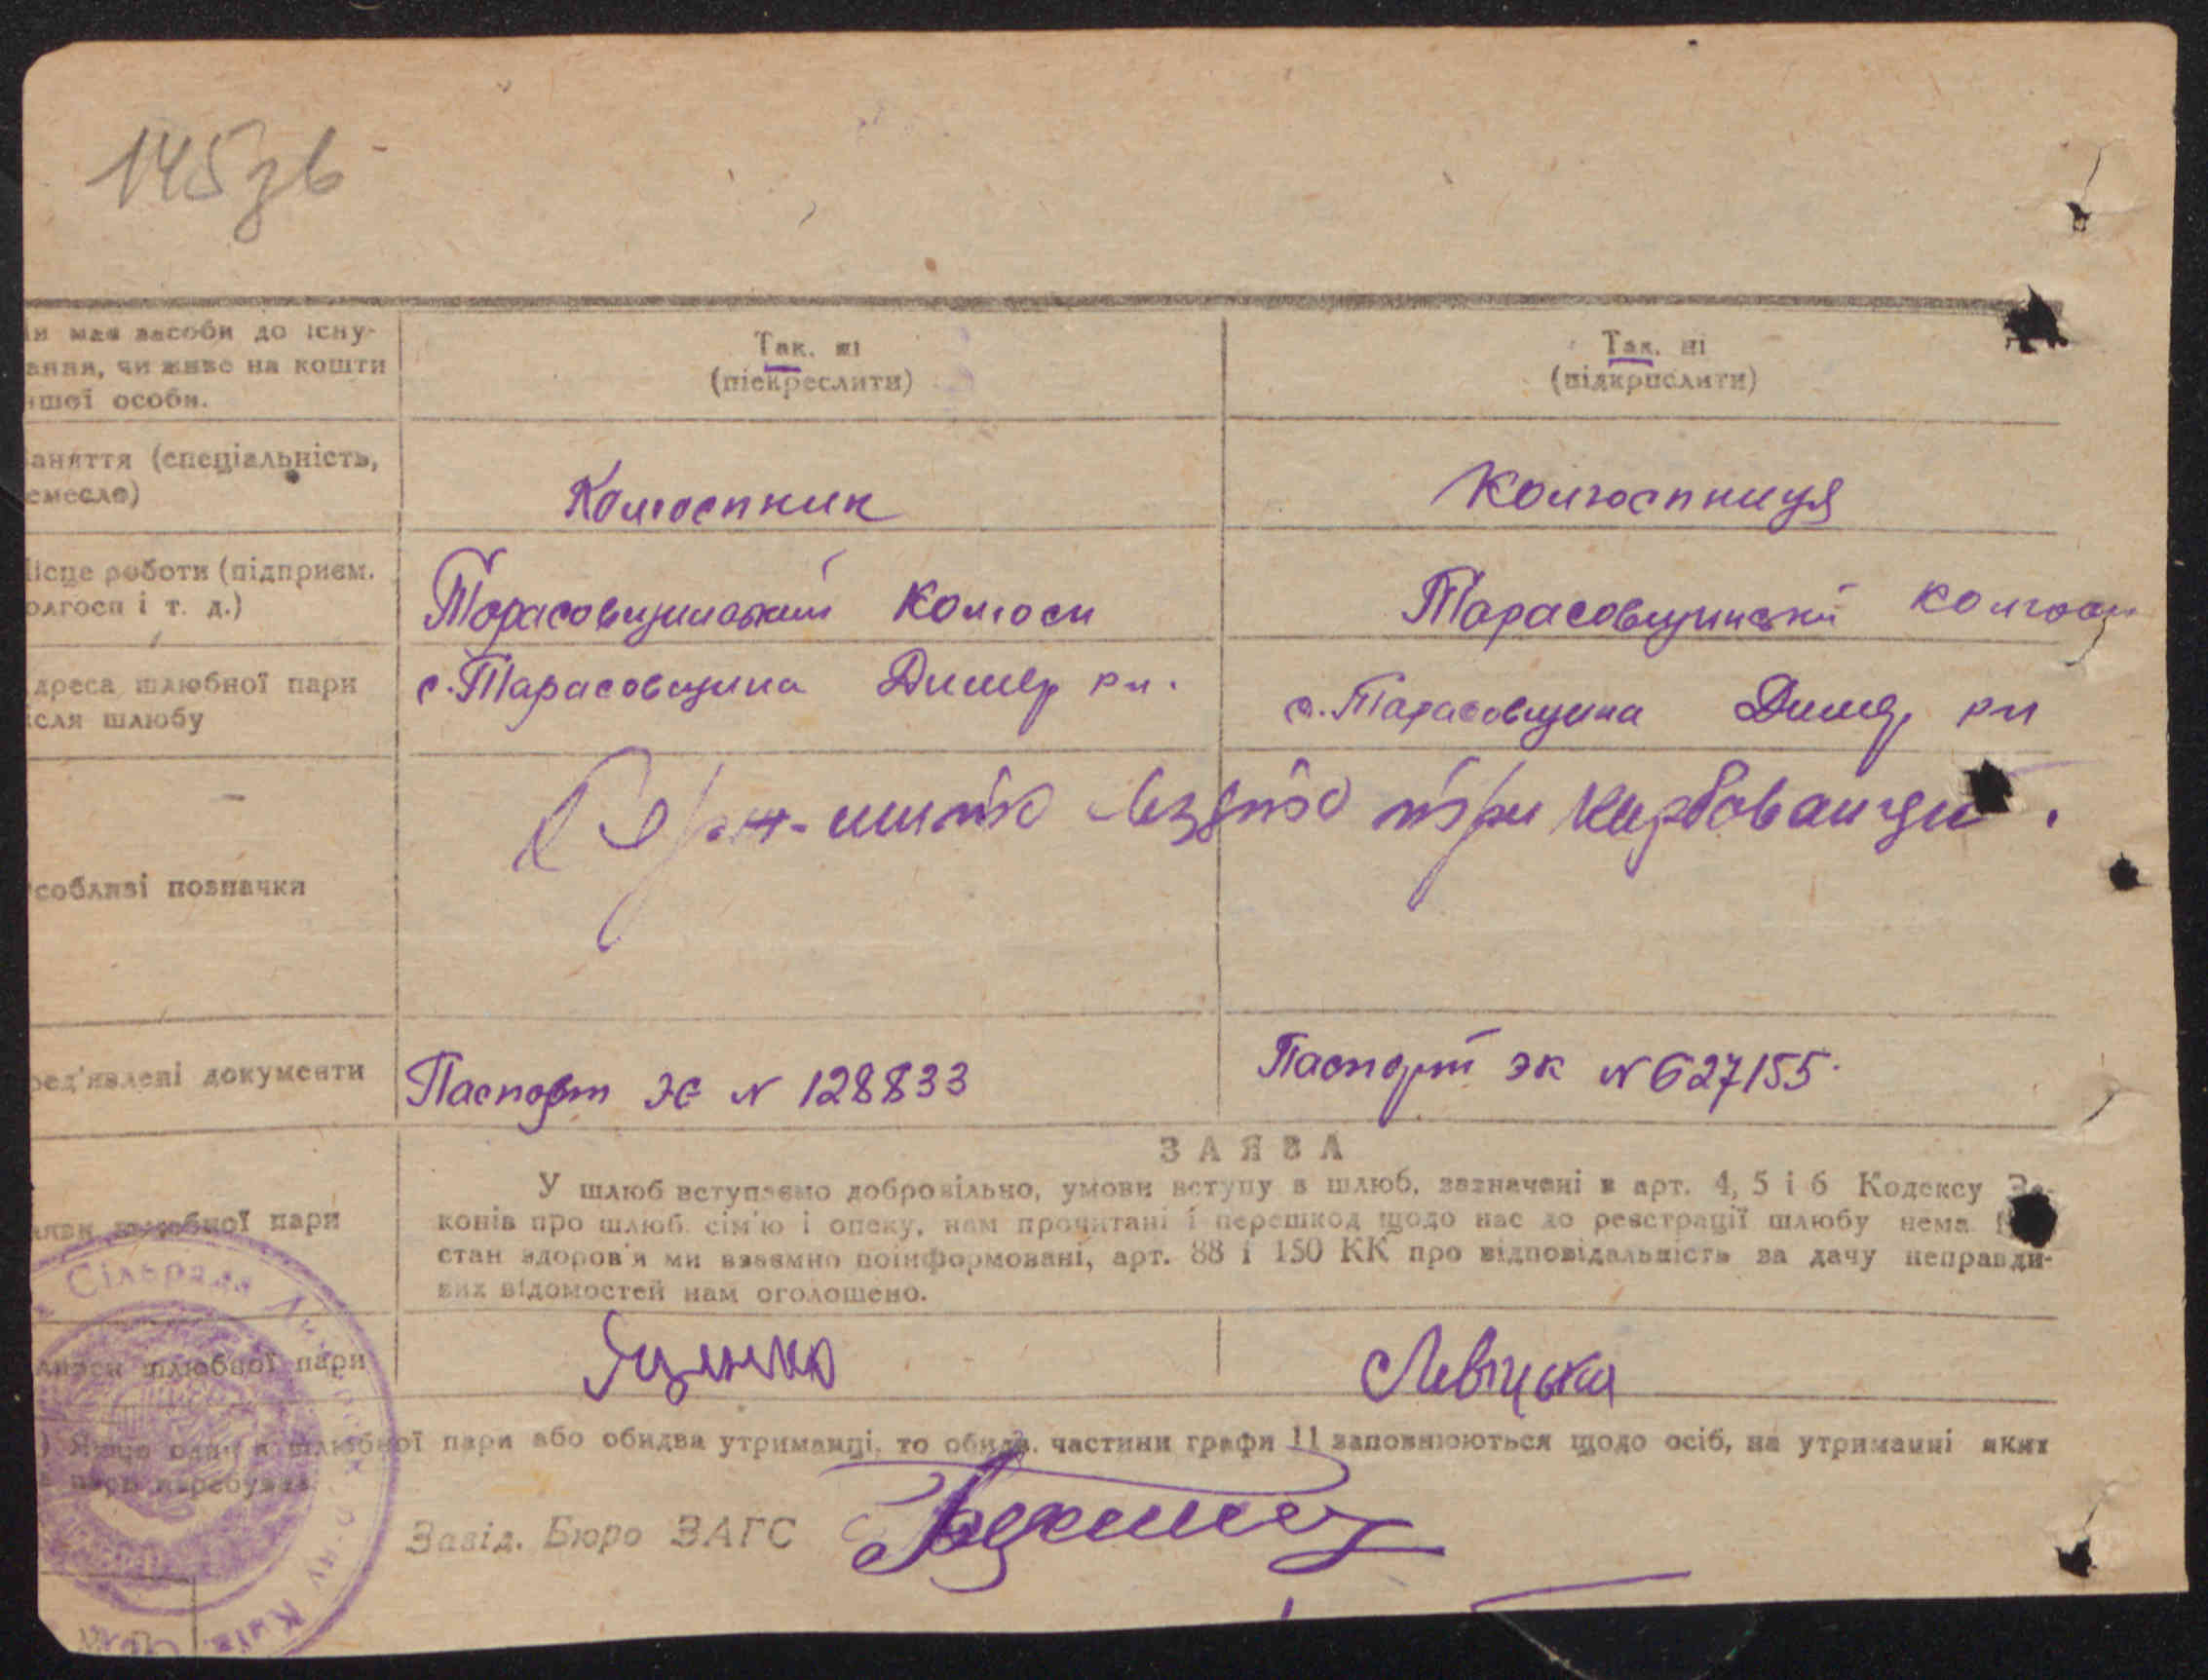 145зв
мав засоби до існу-
Так. ні
Так. ні
чи живе на кошти
(піскреслити)
(підкрислити)
особи.
(спеціальність,
Колгоспник
Колгоспниця
роботи (підприєм.
Тарасовщинський Колгосп
Тарасовщинський колгосп
і т. д.)
шлюбної пари
с. Тарасовщина Димер рн.
с. Тарасовщина Димер рн
шлюбу
позначки
документи
Паспорт ЭЄ № 128833
Паспорт ЭК № 627155.
ЗАЯВА
У шлюб вступаємо добровільно, умови вступу в шлюб, зазначені в арт. 4, 5 і 6 Кодексу За-
шлюбної пари
конів про шлюб, сім'ю і опеку, нам прочитані і перешкод щодо нас до реєстрації шлюбу нема
стан здоров'я ми взаємно поінформовані, арт. 88 і 150 КК про відповідальність за дачу неправди-
вих відомостей нам оголошено.
Сільрада
шлюбної пари
Яценко
Левіцька
) Якщо один з шлюбної пари або обидва утриманці, то обидв. частини графи 11 заповнюються щодо осіб, на утриманні яких
пари перебуває
Завід. Бюро ЗАГС